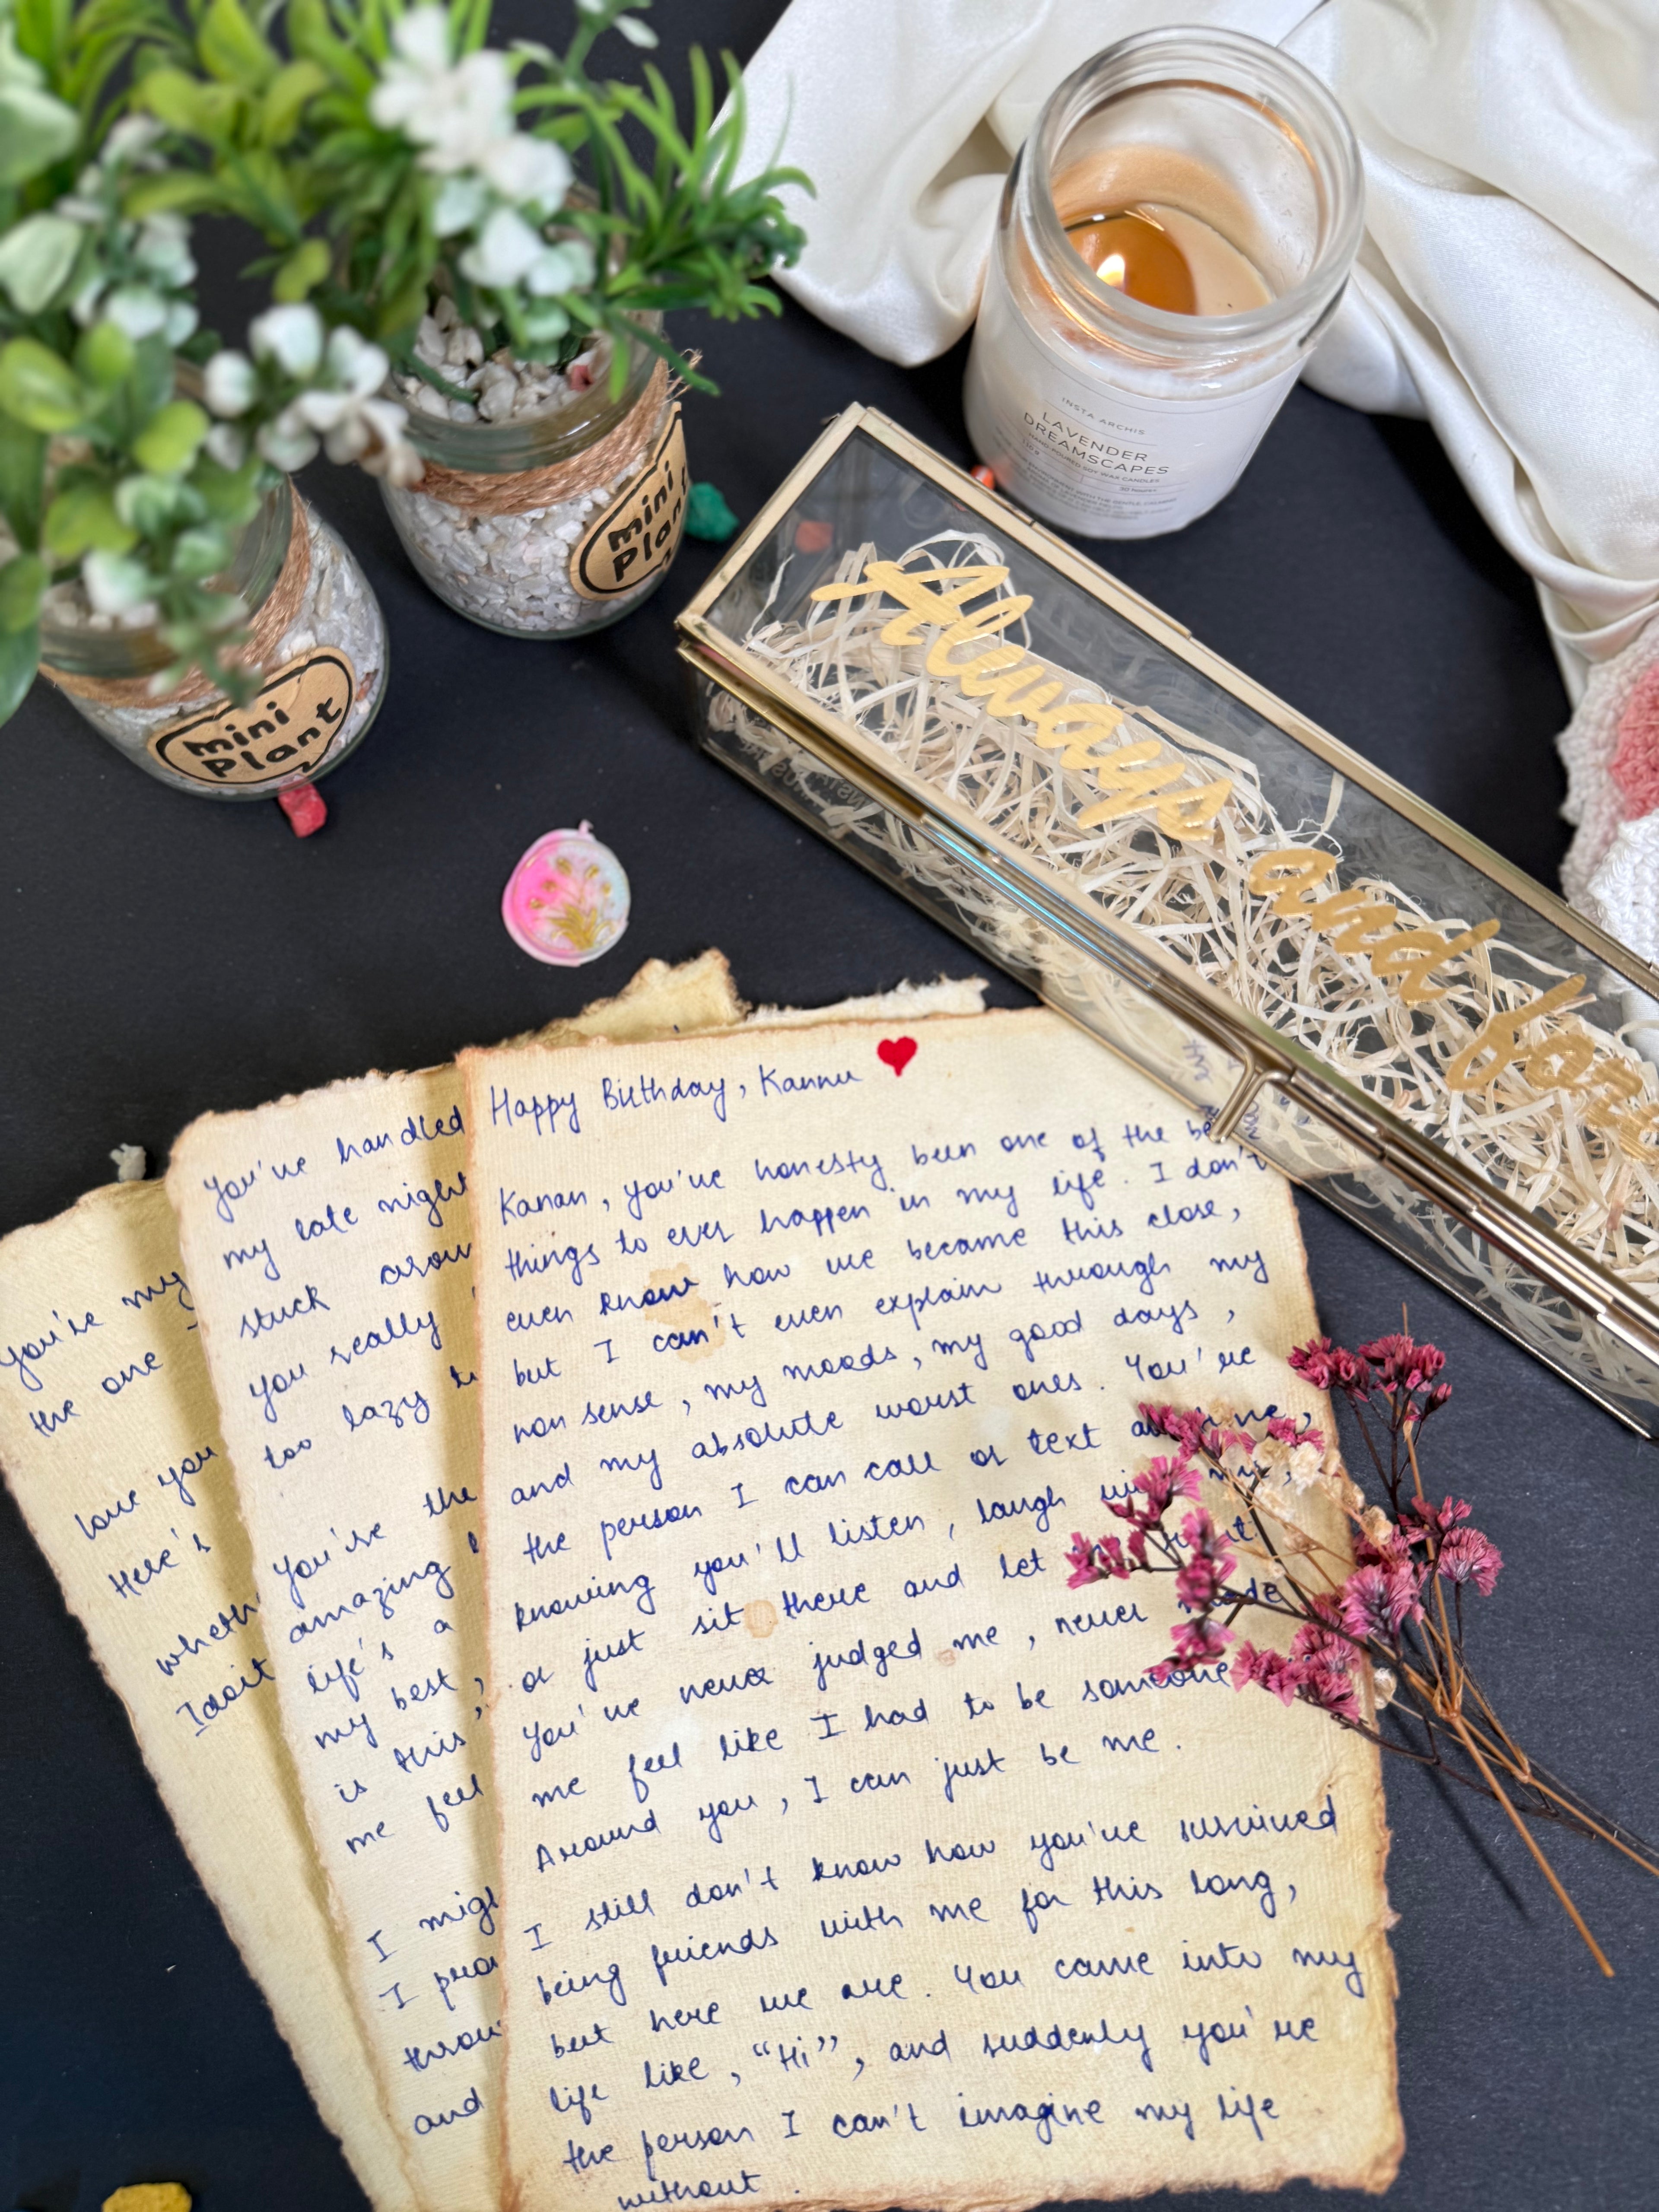 mini
Plant
mini
Plant
INSTA ARCHIS
LAVENDER
DREAMSCAPES
HAND-POURED SOY WAX CANDLES
Always
and for
Happy Birthday, Kannu
Kanan, you've honesty been one of the be
things to ever happen in my life. I don't
even know how we became this close,
but I can't even explain through my
non sense, my moods, my good days,
and my absolute worst ones. You've
the person I can call or text
knowing you'll listen, laugh
or just sit there and let
You've never judged me, never
me feel like I had to be someone
Around you, I can just be me.
I still don't know how you've survived
being friends with me for this long,
but here we are. You came into my
life like, "Hi", and suddenly you're
the person I can't imagine my life
without.
You've handled
my late night
stuck
you really
too lazy
You're the
amazing
life's a
my best,
is this,
me feel
I
I
and
You're my
the one
love you
Here's
Idoit